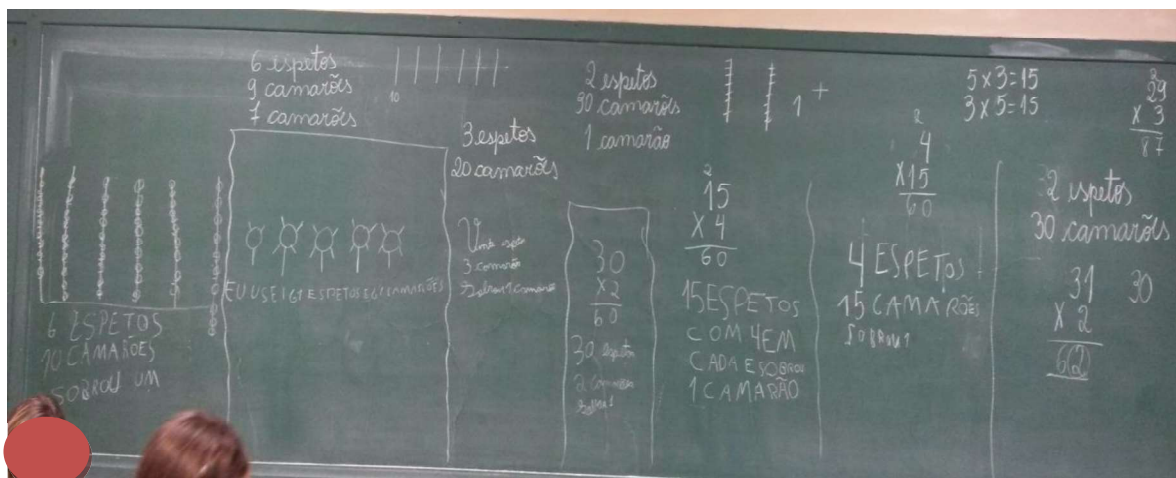 6 espetos
9 camarões
7 camarões
10
6 ESPETOS
10 CAMAROES
SOBROU UM
EU USEI 61 ESPETOS E 61 CAMARÕES
3 espetos
20 camarões
3 camarão
2 espetos
30 camarões
1 camarão
1 +
30
x2
60
30 espetos
2 camarões
sobrou 1
2
15
X 4
60
15 ESPETOS
COM 4 EM
CADA E SOBROU
1 CAMARÃO
5x3=15
3x5=15
2
4
X15
60
4 ESPETOS
15 CAMARÕES
SOBROU 1
2
29
x 3
87
2 espetos
30 camarões
31 30
x 2
62